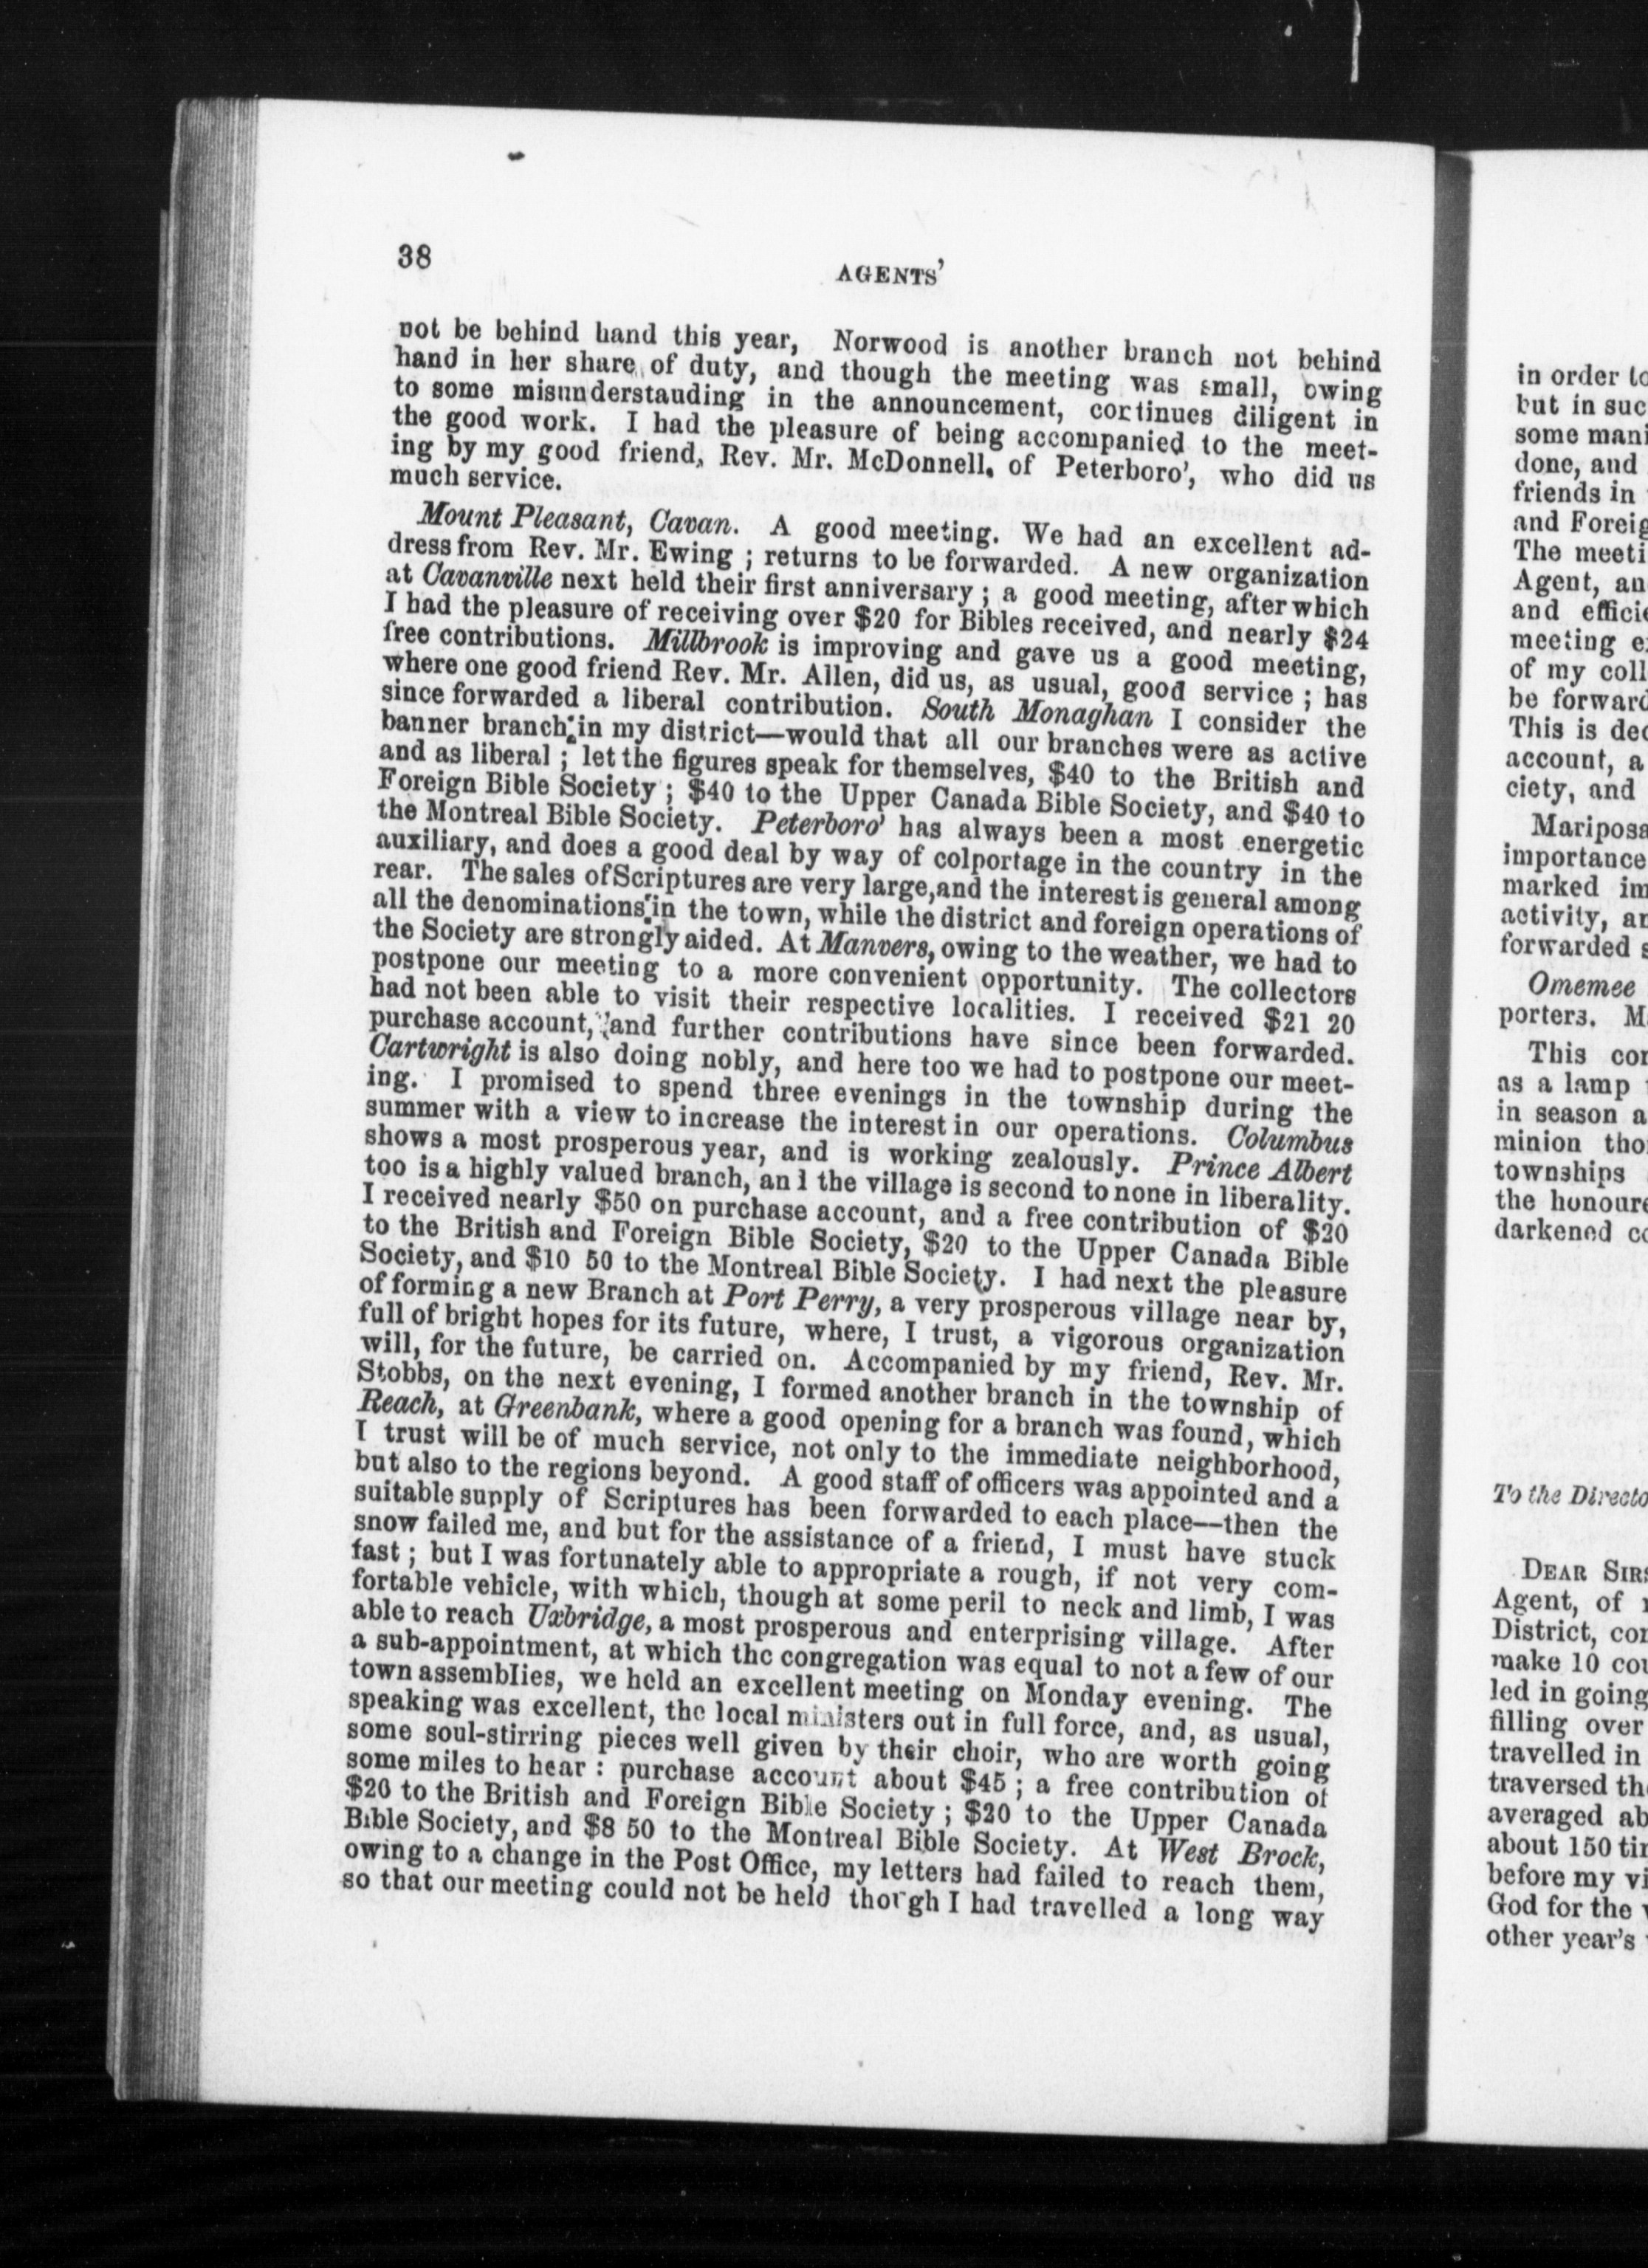 38
AGENTS'
not be behind hand this year, Norwood is another branch not behind
hand in her share of duty, and though the meeting was small, owing
to some misunderstauding in the announcement, continues diligent in
the good work. I had the pleasure of being accompanied to the meet-
ing by my good friend, Rev. Mr. McDonnell, of Peterboro', who did us
much service.
Mount Pleasant, Cavan. A good meeting. We had an excellent ad-
dress from Rev. Mr. Ewing ; returns to be forwarded. A new organization
at Cavanville next held their first anniversary ; a good meeting, after which
I had the pleasure of receiving over $20 for Bibles received, and nearly $24
free contributions. Millbrook is improving and gave us a good meeting,
where one good friend Rev. Mr. Allen, did us, as usual, good service ; has
since forwarded a liberal contribution. South Monaghan I consider the
banner branch in my district—would that all our branches were as active
and as liberal ; let the figures speak for themselves, $40 to the British and
Foreign Bible Society ; $40 to the Upper Canada Bible Society, and $40 to
the Montreal Bible Society. Peterboro' has always been a most energetic
auxiliary, and does a good deal by way of colportage in the country in the
rear. The sales of Scriptures are very large, and the interest is general among
all the denominations in the town, while the district and foreign operations of
the Society are strongly aided. At Manvers, owing to the weather, we had to
postpone our meeting to a more convenient opportunity. The collectors
had not been able to visit their respective localities. I received $21 20
purchase account, and further contributions have since been forwarded.
Cartwright is also doing nobly, and here too we had to postpone our meet-
ing. I promised to spend three evenings in the township during the
summer with a view to increase the interest in our operations. Columbus
shows a most prosperous year, and is working zealously. Prince Albert
too is a highly valued branch, and the village is second to none in liberality.
I received nearly $50 on purchase account, and a free contribution of $20
to the British and Foreign Bible Society, $20 to the Upper Canada Bible
Society, and $10 50 to the Montreal Bible Society. I had next the pleasure
of forming a new Branch at Port Perry, a very prosperous village near by,
full of bright hopes for its future, where, I trust, a vigorous organization
will, for the future, be carried on. Accompanied by my friend, Rev. Mr.
Stobbs, on the next evening, I formed another branch in the township of
Reach, at Greenbank, where a good opening for a branch was found, which
I trust will be of much service, not only to the immediate neighborhood,
but also to the regions beyond. A good staff of officers was appointed and a
suitable supply of Scriptures has been forwarded to each place—then the
snow failed me, and but for the assistance of a friend, I must have stuck
fast ; but I was fortunately able to appropriate a rough, if not very com-
fortable vehicle, with which, though at some peril to neck and limb, I was
able to reach Uxbridge, a most prosperous and enterprising village. After
a sub-appointment, at which the congregation was equal to not a few of our
town assemblies, we held an excellent meeting on Monday evening. The
speaking was excellent, the local ministers out in full force, and, as usual,
some soul-stirring pieces well given by their choir, who are worth going
some miles to hear : purchase account about $45 ; a free contribution of
$20 to the British and Foreign Bible Society ; $20 to the Upper Canada
Bible Society, and $8 50 to the Montreal Bible Society. At West Brock,
owing to a change in the Post Office, my letters had failed to reach them,
so that our meeting could not be held though I had travelled a long way
in order to
but in suc
some mani
done, and
friends in
and Foreig
The meeti
Agent, an
and efficie
meeting e
of my coll
be forward
This is dec
account, a
ciety, and
Mariposa
importance
marked im
activity, an
forwarded s
Omemee
porters. M
This con
as a lamp
in season a
minion tho
townships
the honoure
darkened co
To the Directo
DEAR SIRS
Agent, of
District, con
make 10 cou
led in going
filling over
travelled in
traversed the
averaged ab
about 150 tim
before my vi
God for the
other year's